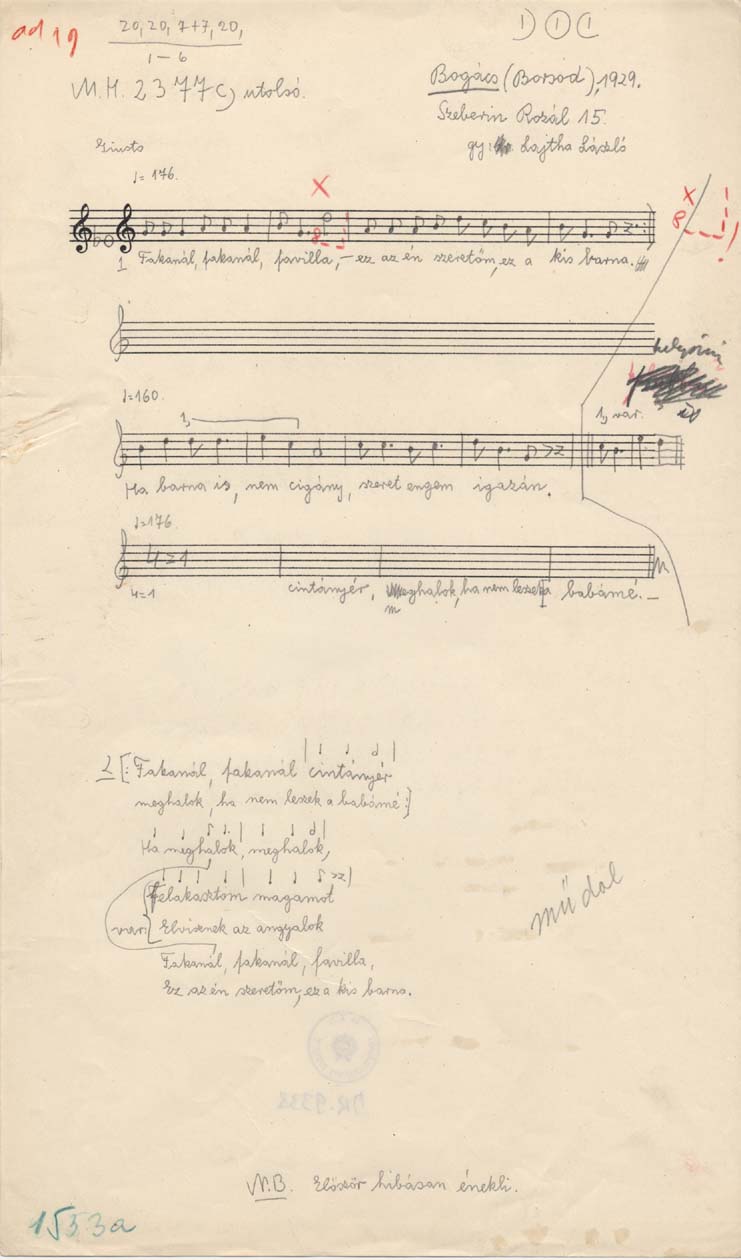 ad 19
20, 20, 7+7, 20,
1–6
M.H. 2377c) utolsó.
Bogács (Borsod), 1929.
Szeberin Rozál 15.
gy: Lajtha László
Giusto
♩= 176.
1 Fakanál, fakanál, favilla, – ez az én szeretőm, ez a kis barna.
♩=160.
1,
1, var.
Ha barna is, nem cigány, szeret engem igazán.
♩=176.
4=1
4=1 cintányér, meghalok, ha nem leszek a babámé. –
2 [: Fakanál, fakanál cintányér
meghalok, ha nem leszek a babámé :]
Ha meghalok, meghalok,
Felakasztom magamot
var: Elvisznek az angyalok
Fakanál, fakanál, favilla,
Ez az én szeretőm, ez a kis barna.
műdal
N.B. Először hibásan énekli.
1553a